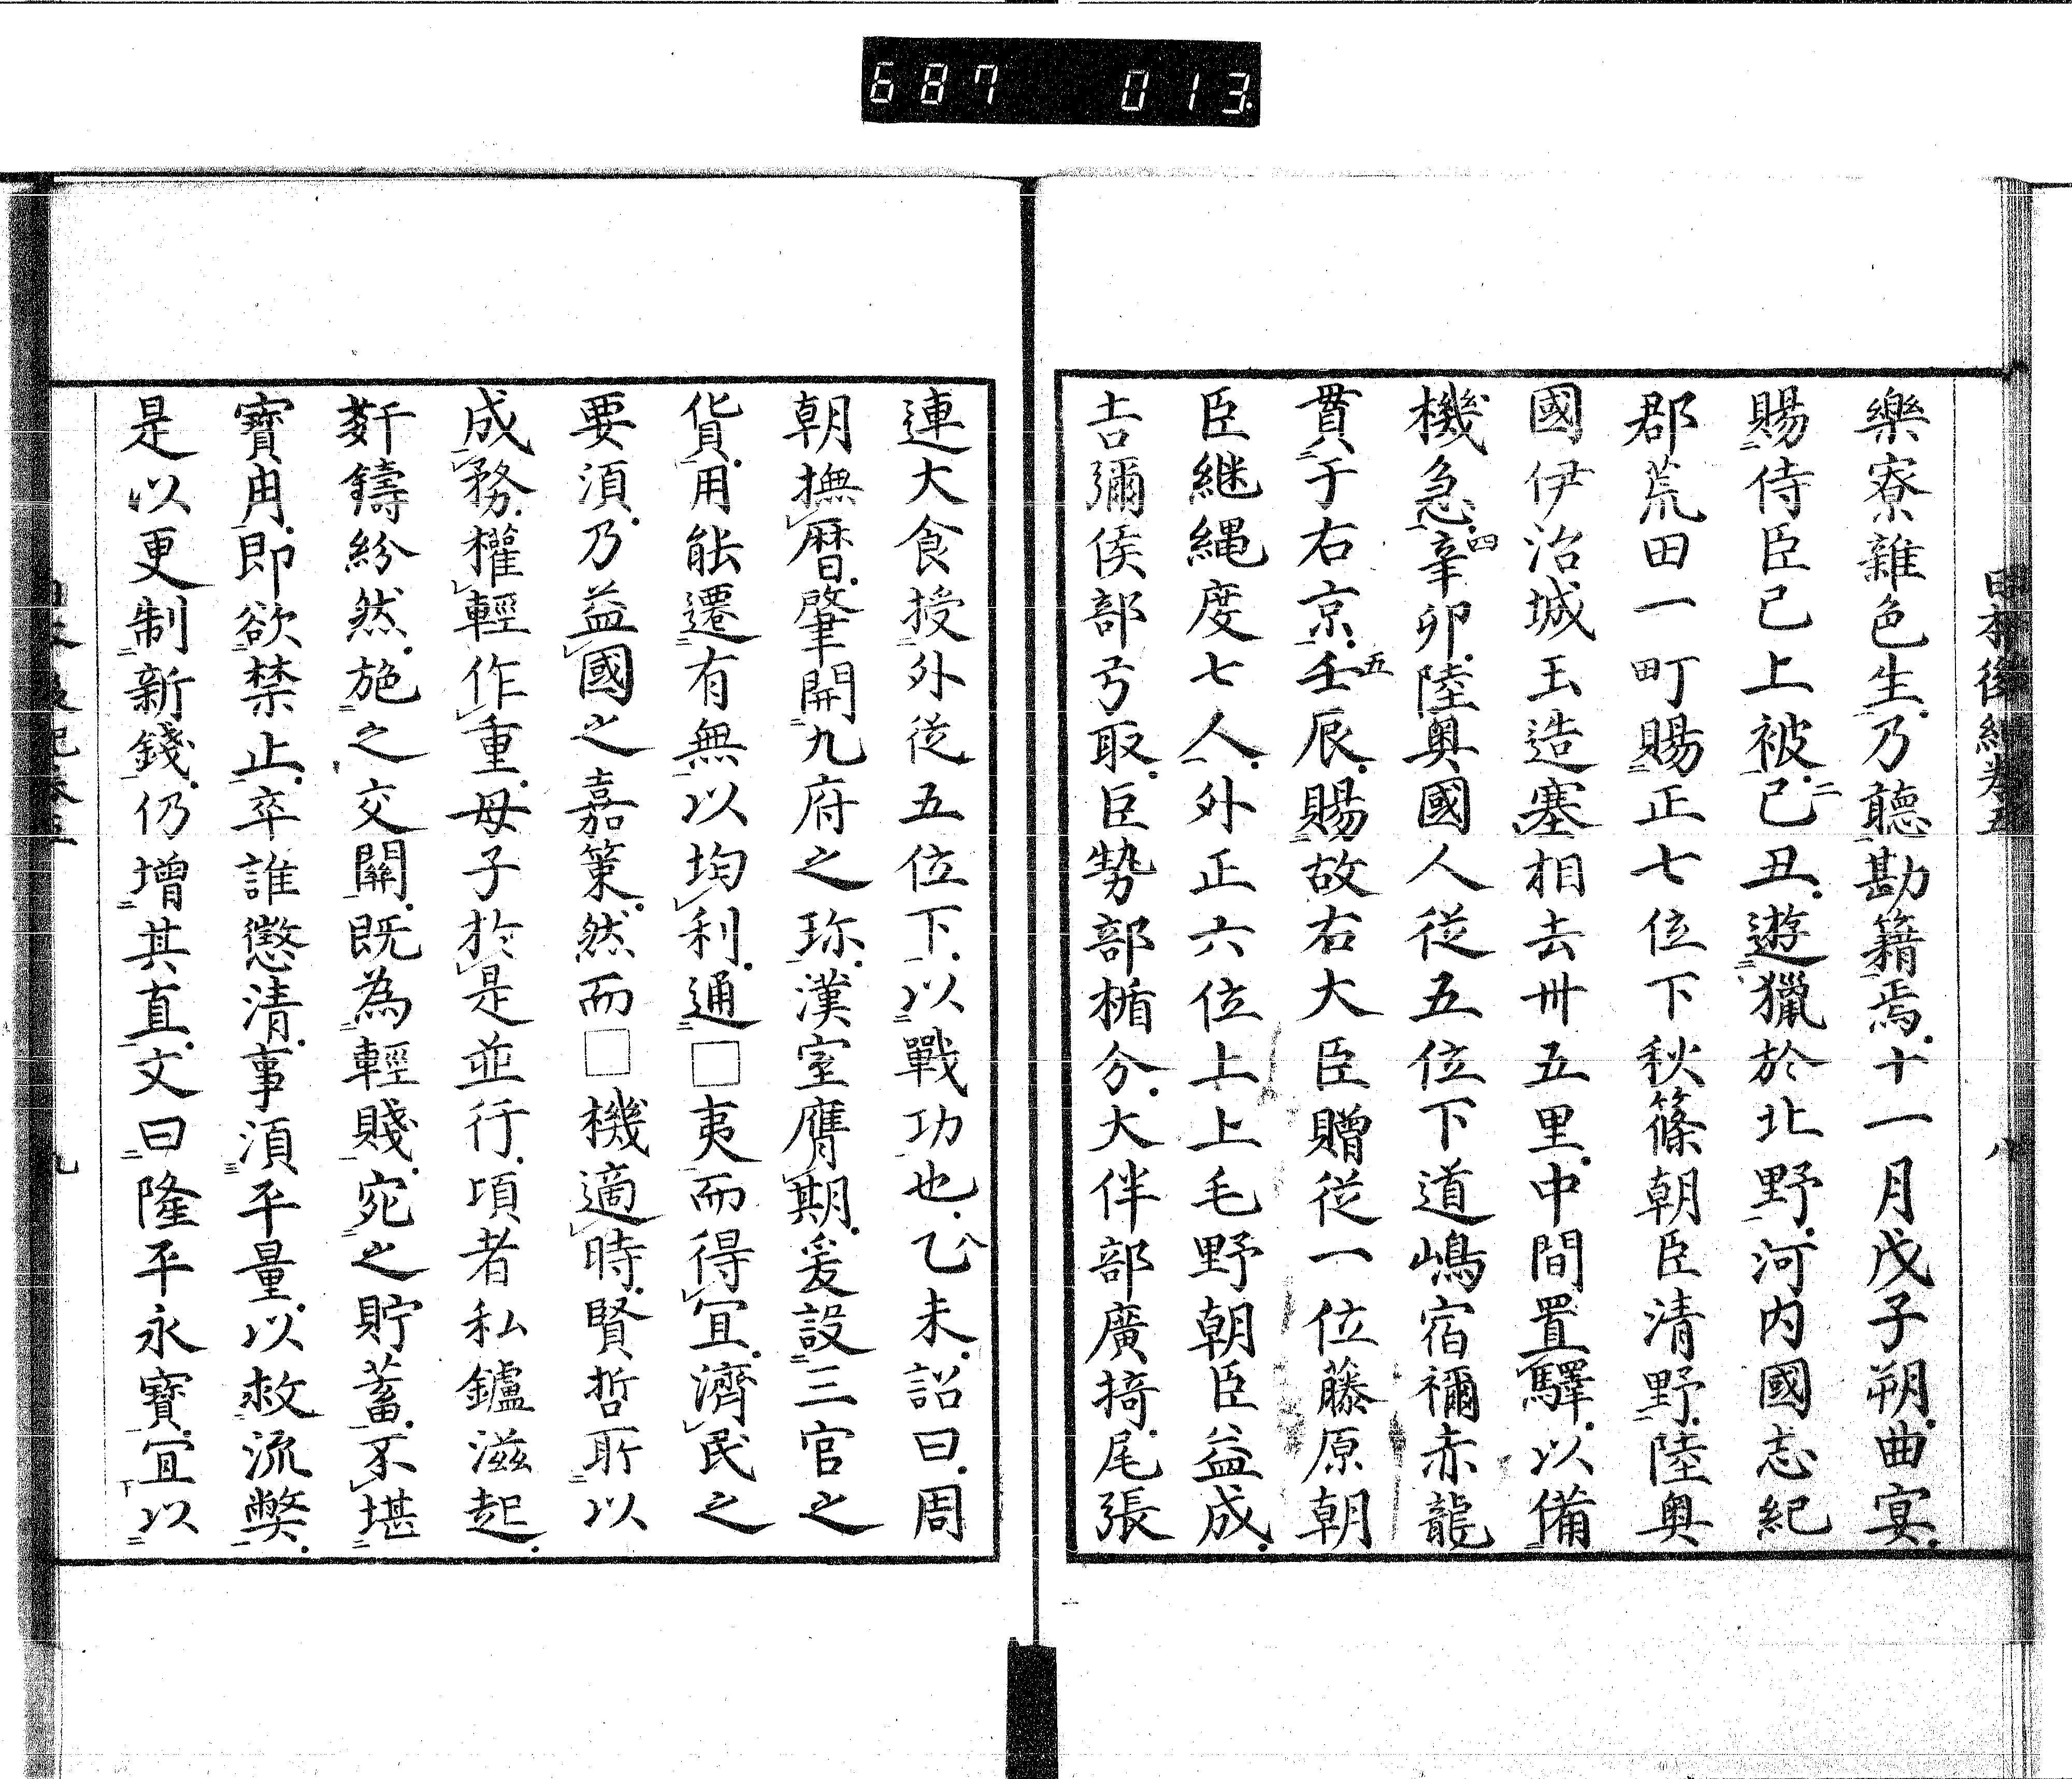 687 013
日本後紀卷五 八
樂寮雜色生乃聽勘籍焉十一月戊子朔曲宴
賜侍臣已上被己二丑遊獵於北野河内國志紀
郡荒田一町賜正七位下秋篠朝臣清野陸奥
國伊治城玉造塞相去卅五里中間置驛以備
機急辛四卯陸奥國人従五位下道嶋宿禰赤龍
貫于右京壬五辰賜故右大臣贈従一位藤原朝
臣継縄度七人外正六位上上毛野朝臣益成
吉彌侯部弓取臣勢部楯分大伴部廣掎尾張
連大食授外従五位下以戰功也乙八未詔曰周
朝撫暦肇開九府之珎漢室膺期爰設三官之
貨用能遷有無以均利通□夷而得宜濟民之
要湏乃益國之嘉策然而□機適時賢哲所以
成務權輕作重母子於是並行頃者私鑪滋起
姧鑄紛然施之交關既為輕賤宛之貯蓄不堪
寳用即欲禁止卒誰懲清事湏平量以救流弊
是以更制新錢仍增其直文曰隆平永寳宜以
九